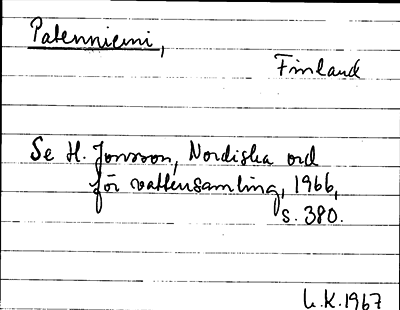 Patenniemi,
Finland
Se H. Jonsson, Nordiska ord
för vattensamling, 1966,
s. 380.
L.K. 1967